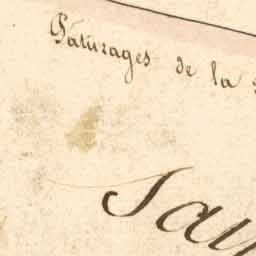 Pâturages de la